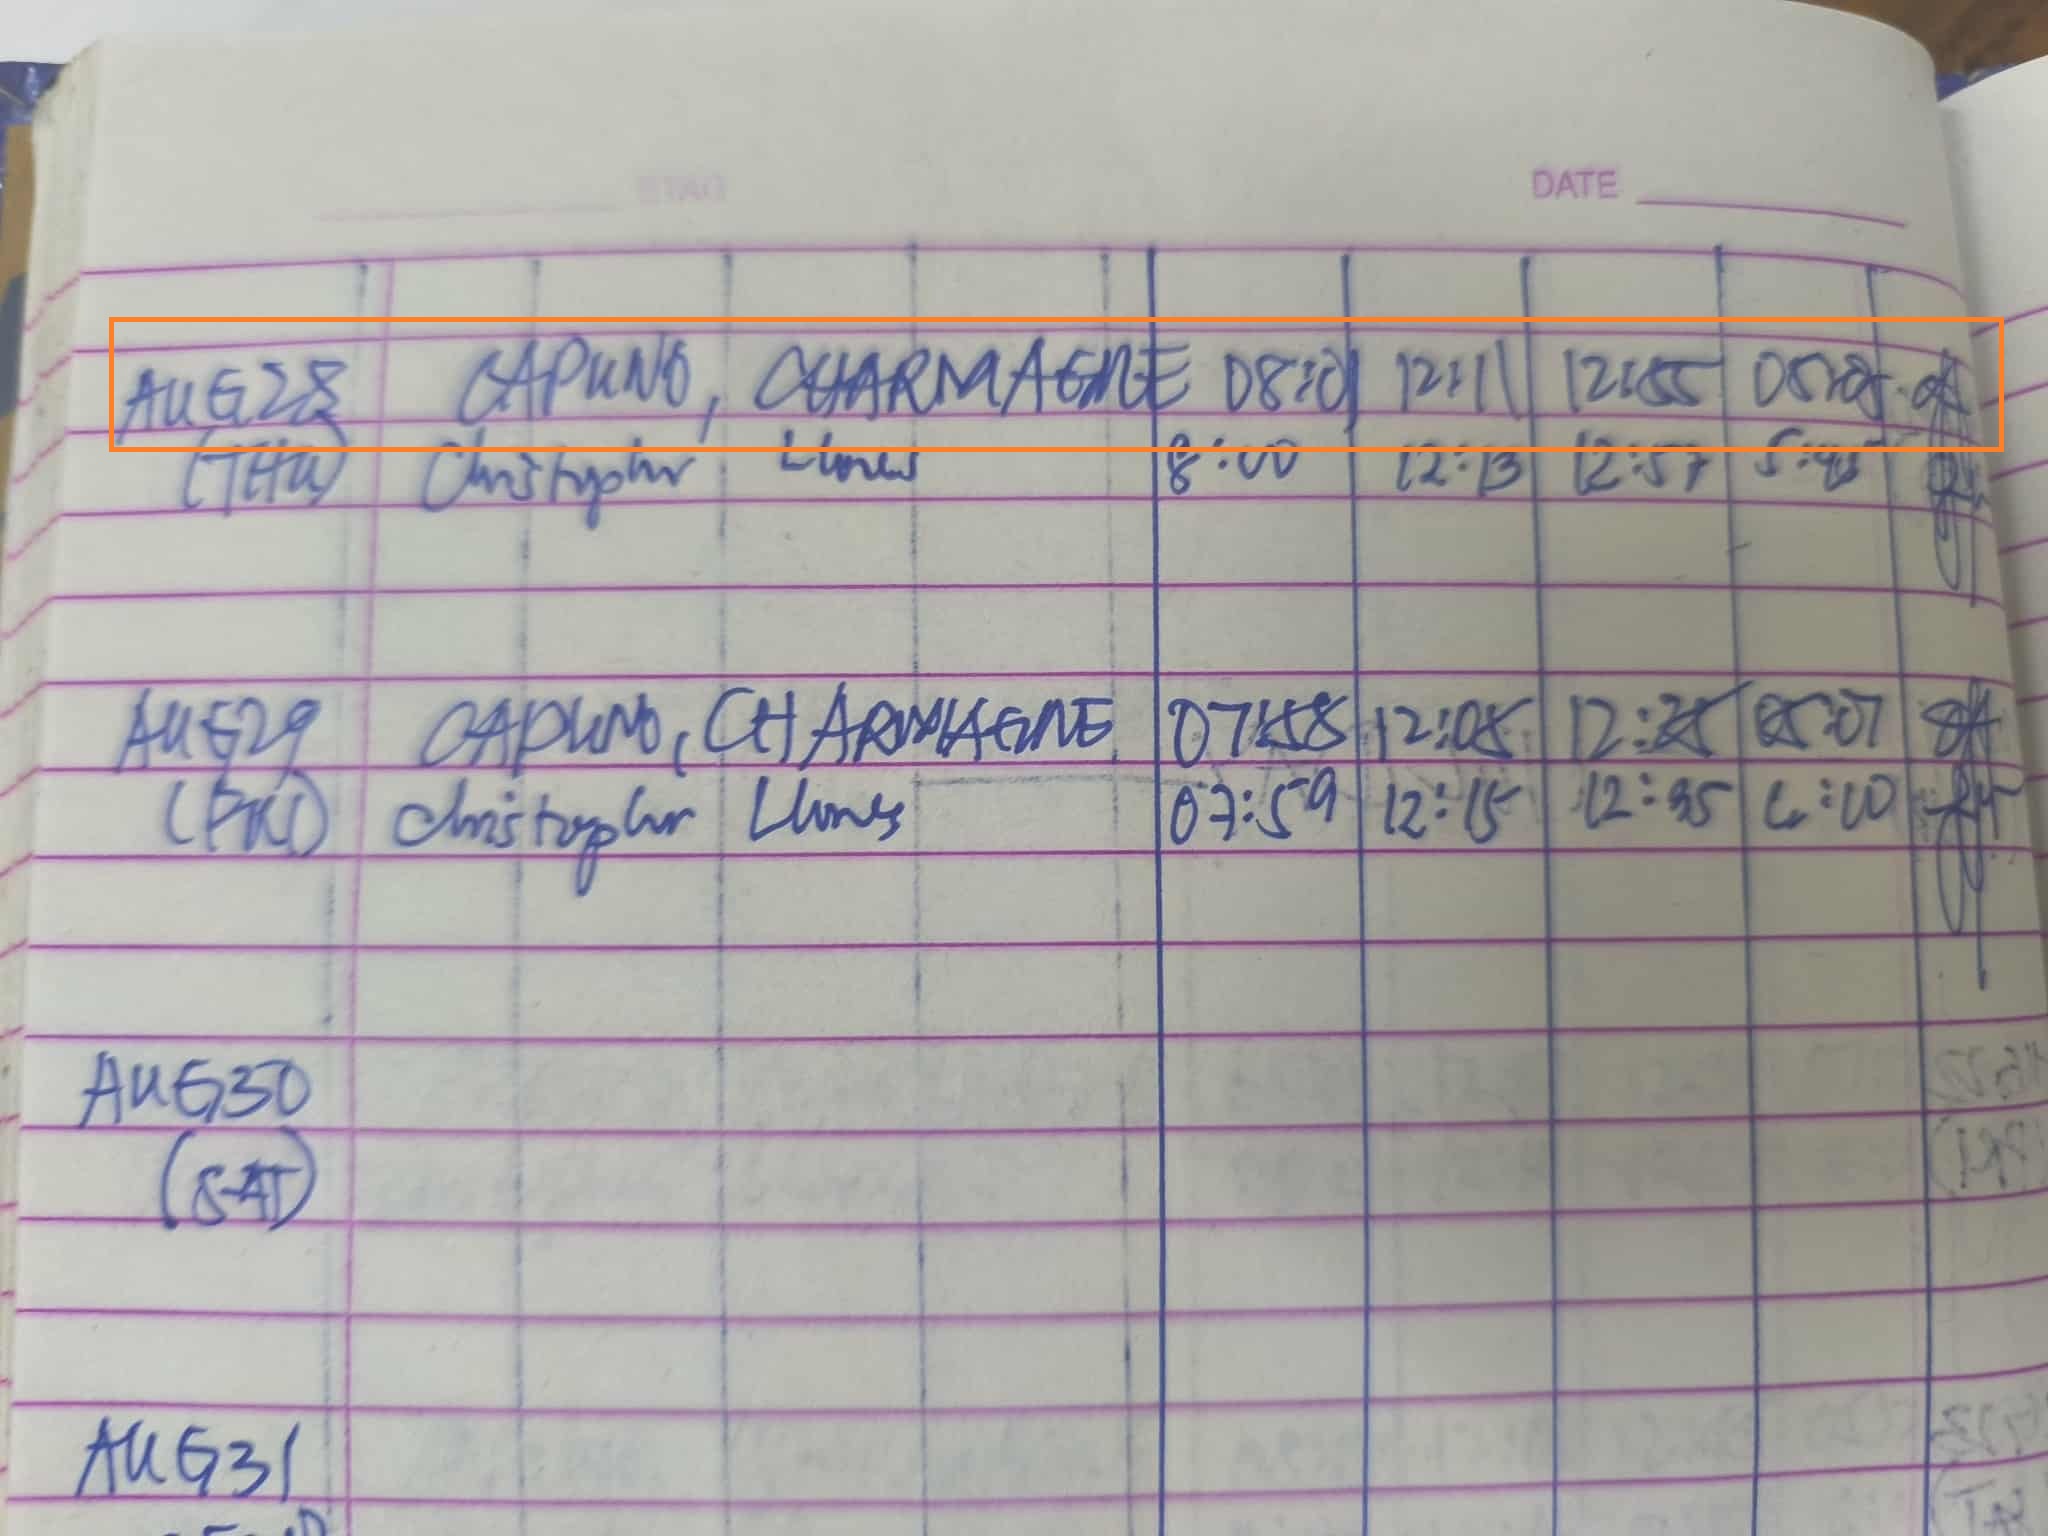 DATE
AUG28 CAPUNO, CHARMAGNE 08:01 12:11 12:55 05:05
(THU) Christopher Llones 8:00 12:13 12:57 5:45
AUG29 CAPUNO, CHARMAGNE 07:58 12:05 12:35 05:07
(FRI) Christopher Llones 07:59 12:15 12:35 6:10
AUG30
(SAT)
AUG31